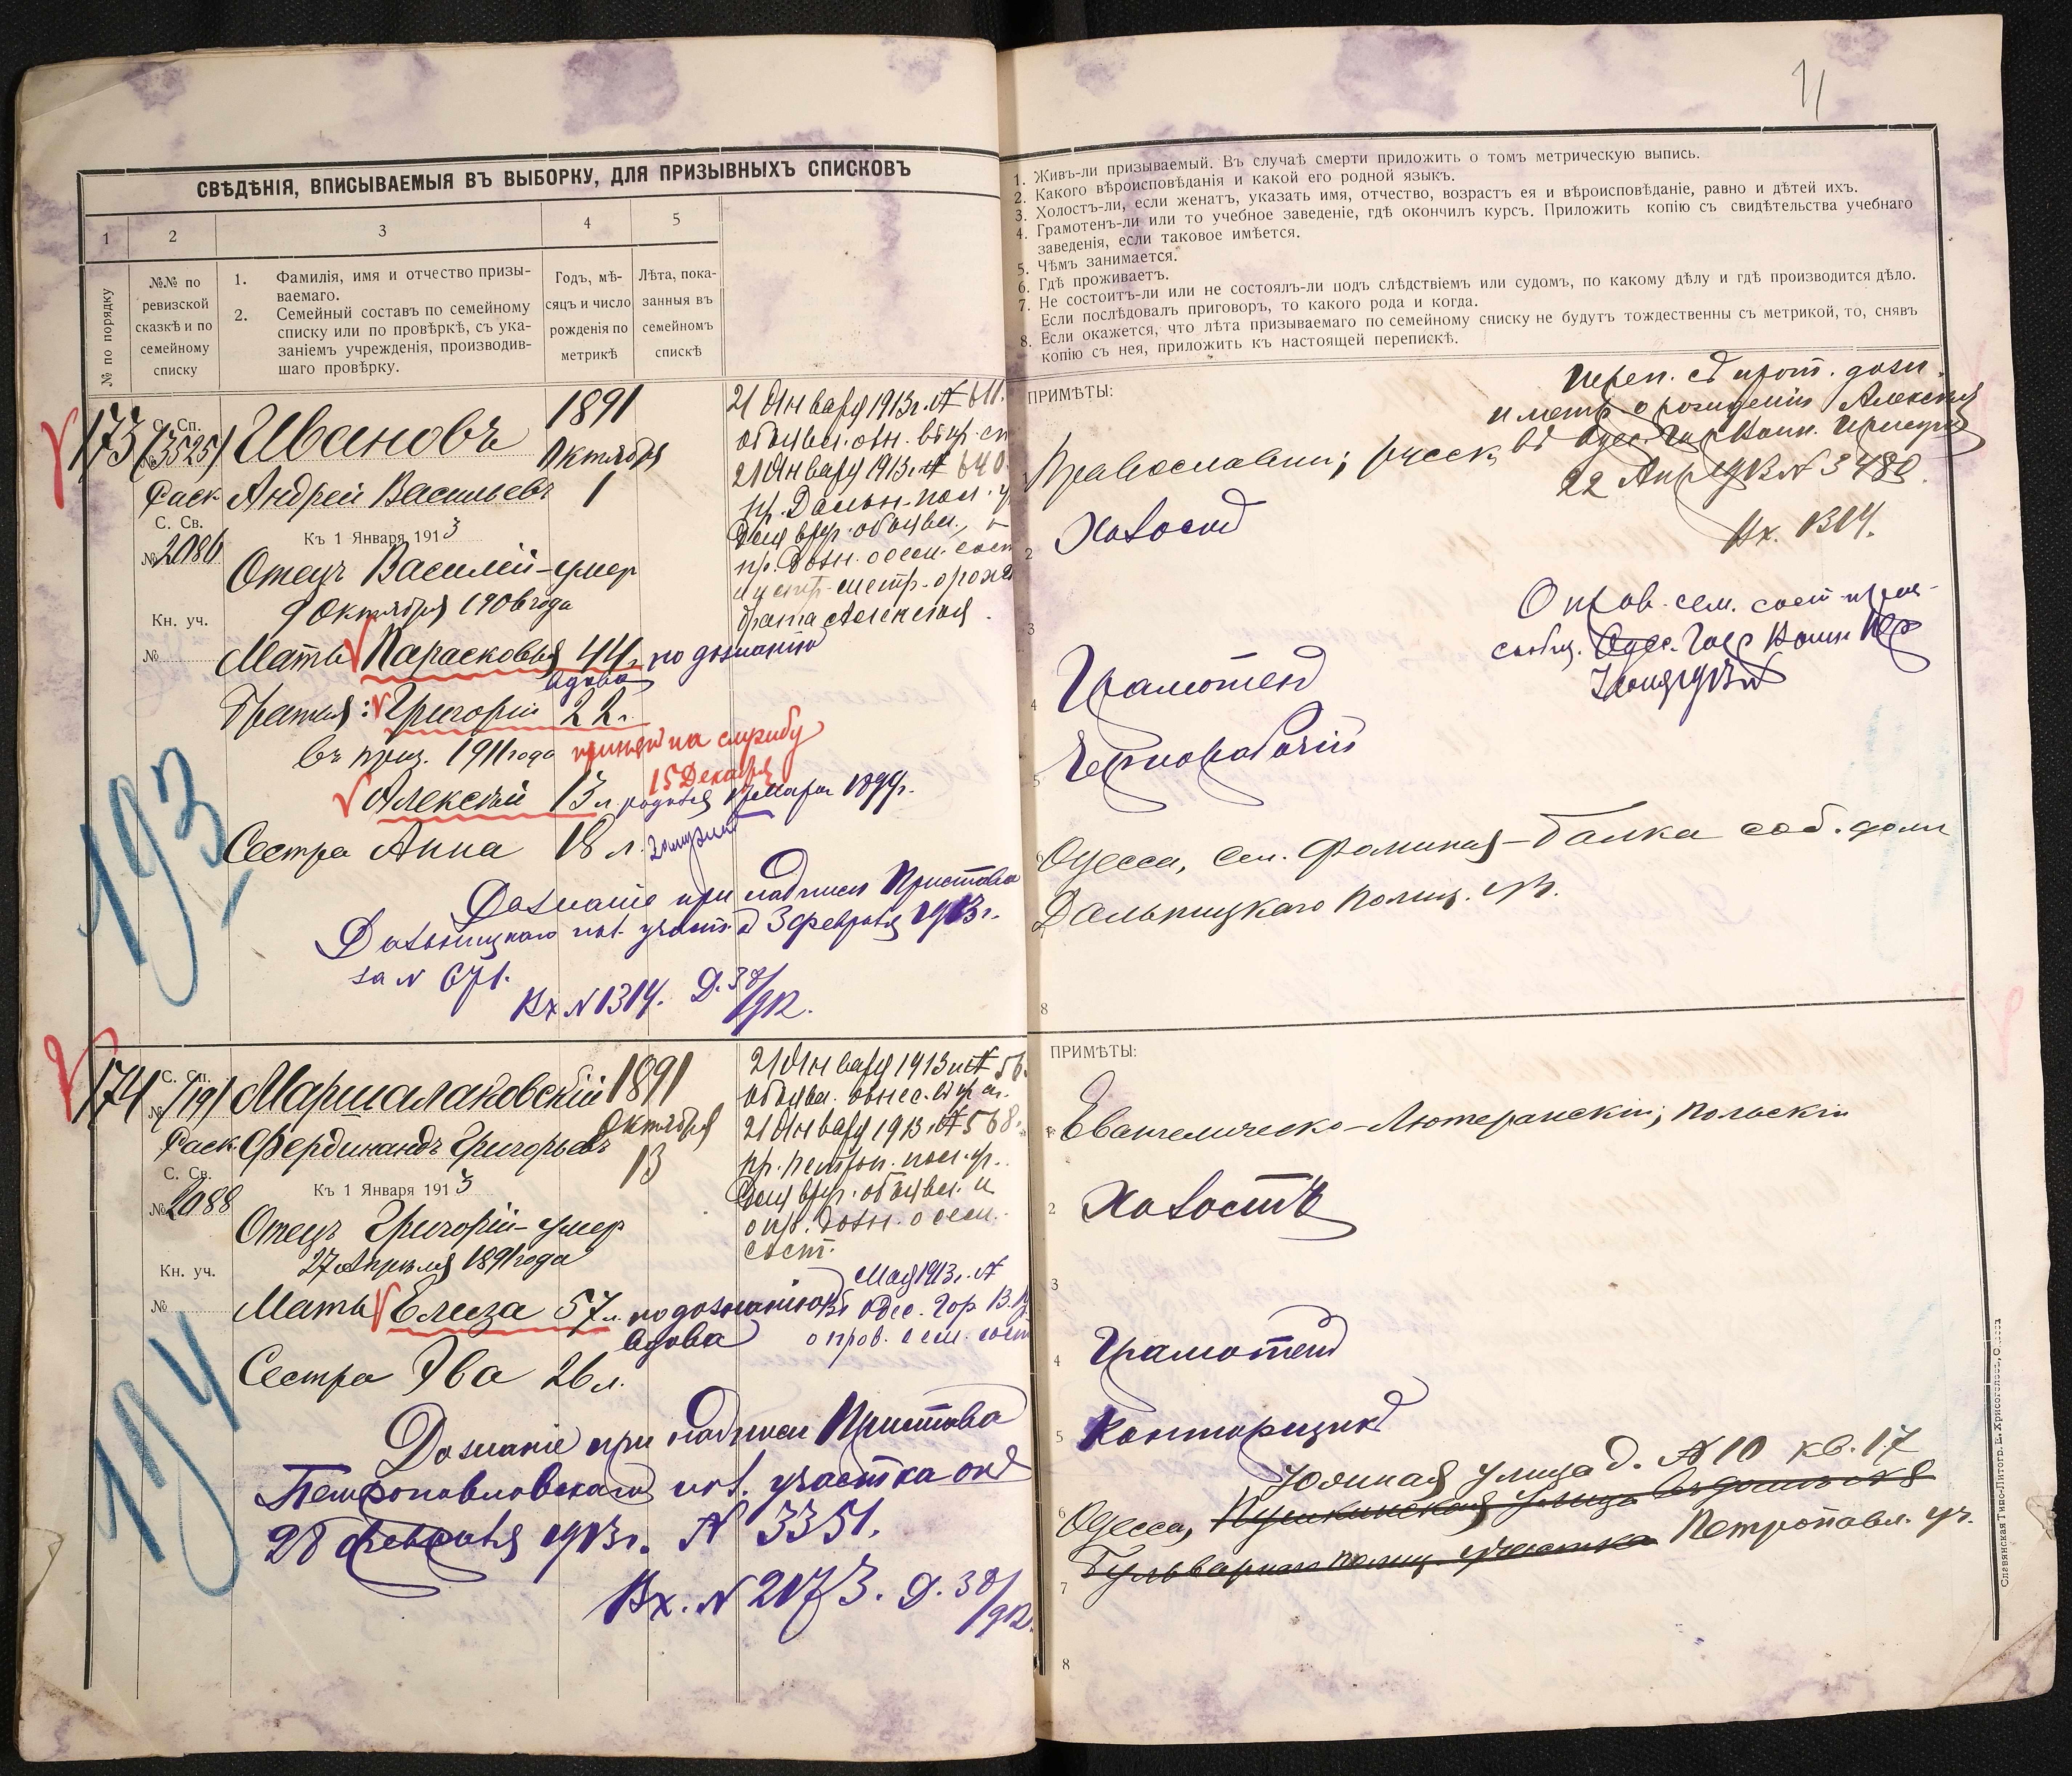 СВѢДѢНІЯ, ВПИСЫВАЕМЫЯ ВЪ ВЫБОРКУ, ДЛЯ ПРИЗЫВНЫХЪ СПИСКОВЪ
1 2 3 4 5
№ по порядку
№№ по ревизской сказкѣ и по семейному списку
1. Фамилія, имя и отчество призы-
ваемаго.
2. Семейный составъ по семейному
списку или по провѣркѣ, съ ука-
заніемъ учрежденія, производив-
шаго провѣрку.
Годъ, мѣ-
сяцъ и число
рожденія по
метрикѣ
Лѣта, пока-
занныя въ
семейномъ
спискѣ
173
С. Сп.
№ 3525
Раск
С. Св.
№ 2086
Кн. уч.
№
Ивановъ
Андрей Васильевъ
1891
Октября
1
Къ 1 Января 1913
Отецъ Василій - умер
9 Октября 1906 года
Мать Парасковья 44 г. по дознанію
вдова
Братья: Григорій 22 г.
въ приз. 1911 года принят на службу
15 Декабря
Алексѣй 13 л. родился 17 Марта 1899 г.
Сестра Анна 18 л. замужем
Дознаніе при надписи Пристава
Дальницкаго пол. участ. от 3 февраля 1913 г.
за N 671.
Вх N 1314. Д. 38/912.
193
21 Января 1913 г. № 611.
21 Января 1913 г. № 640
пр. Дальн. пол. у
брата Алексѣя.
174
С. Сп.
№ 119
Раск.
С. Св.
№ 2088
Кн. уч.
№
Маршалковскій
Фердинандъ Григорьевъ
1891
Октября
13
Къ 1 Января 1913
Отецъ Григорій - умер
27 Апрѣля 1891 года
Мать Елиза 57 л. по дознанію
вдова
Сестра Эва 26 л.
Дознаніе при надписи Пристава
Петропавловскаго пол. участка от
28 февраля 1913 г. N 3351.
Вх. N 2173. Д. 38/912.
194
21 Января 1913 г. № 56
21 Января 1913 г. № 568.
пр. Петроп. пол. уч.
сост.
Мая 1913 г. №
Въ Одес. Гор. В. П
о пров. сем. сост
11
1. Живъ-ли призываемый. Въ случаѣ смерти приложить о томъ метрическую выпись.
2. Какого вѣроисповѣданія и какой его родной языкъ.
3. Холостъ-ли, если женатъ, указать имя, отчество, возрастъ ея и вѣроисповѣданіе, равно и дѣтей ихъ.
4. Грамотенъ-ли или то учебное заведеніе, гдѣ окончилъ курсъ. Приложить копію съ свидѣтельства учебнаго
заведенія, если таковое имѣется.
5. Чѣмъ занимается.
6. Гдѣ проживаетъ.
7. Не состоитъ-ли или не состоялъ-ли подъ слѣдствіемъ или судомъ, по какому дѣлу и гдѣ производится дѣло.
Если послѣдовалъ приговоръ, то какого рода и когда.
8. Если окажется, что лѣта призываемаго по семейному списку не будутъ тождественны съ метрикой, то, снявъ
копію съ нея, приложить къ настоящей перепискѣ.
ПРИМѢТЫ:
Переп. съ прот. дозн.
и метр о рожденіи Алексѣя
въ Одес. Гор. Воин. Присут.
22 Апр 1913 N 3480.
Вх. 1314.
Православный; русск
2 Холост
О пров. сем. сост.
3
4 Грамотен
5 Чернорабочій
Одесса, сел. Фомина-Балка соб. дом
Дальницкаго полиц. уч.
8
ПРИМѢТЫ:
1 Евангелическо-Лютеранскій; польскій
2 Холостъ
3
4 Грамотен
5 Конторщик
Южная улица д. № 10 кв. 17
6 Одесса, Пушкинская улица
Бульварнаго полиц. участка Петропавл. уч.
7
8
Славянская Типо-Литогр. Е. Хрисогелосъ, Одесса